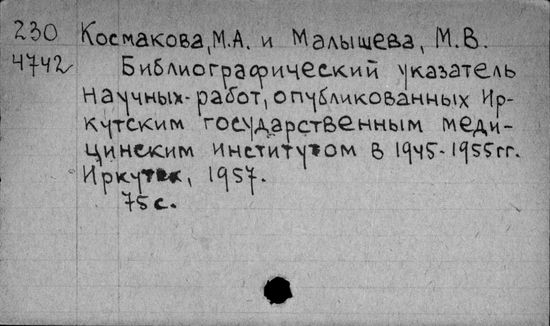 230 Космакова, М.А. и Малышева, М.В.
4742 Библиографический указатель
научных работ, опубликованных Ир-
кутским государственным меди-
цинским институтом в 1945-1955гг.
Иркутск, 1957.
75с.